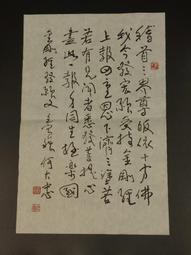 稽首三界尊皈依十方佛
我今發宏願受持金剛經
上報四重恩下濟三途苦
若有見聞者悉發菩提心
盡此一報身同生極樂國
金剛經發願文